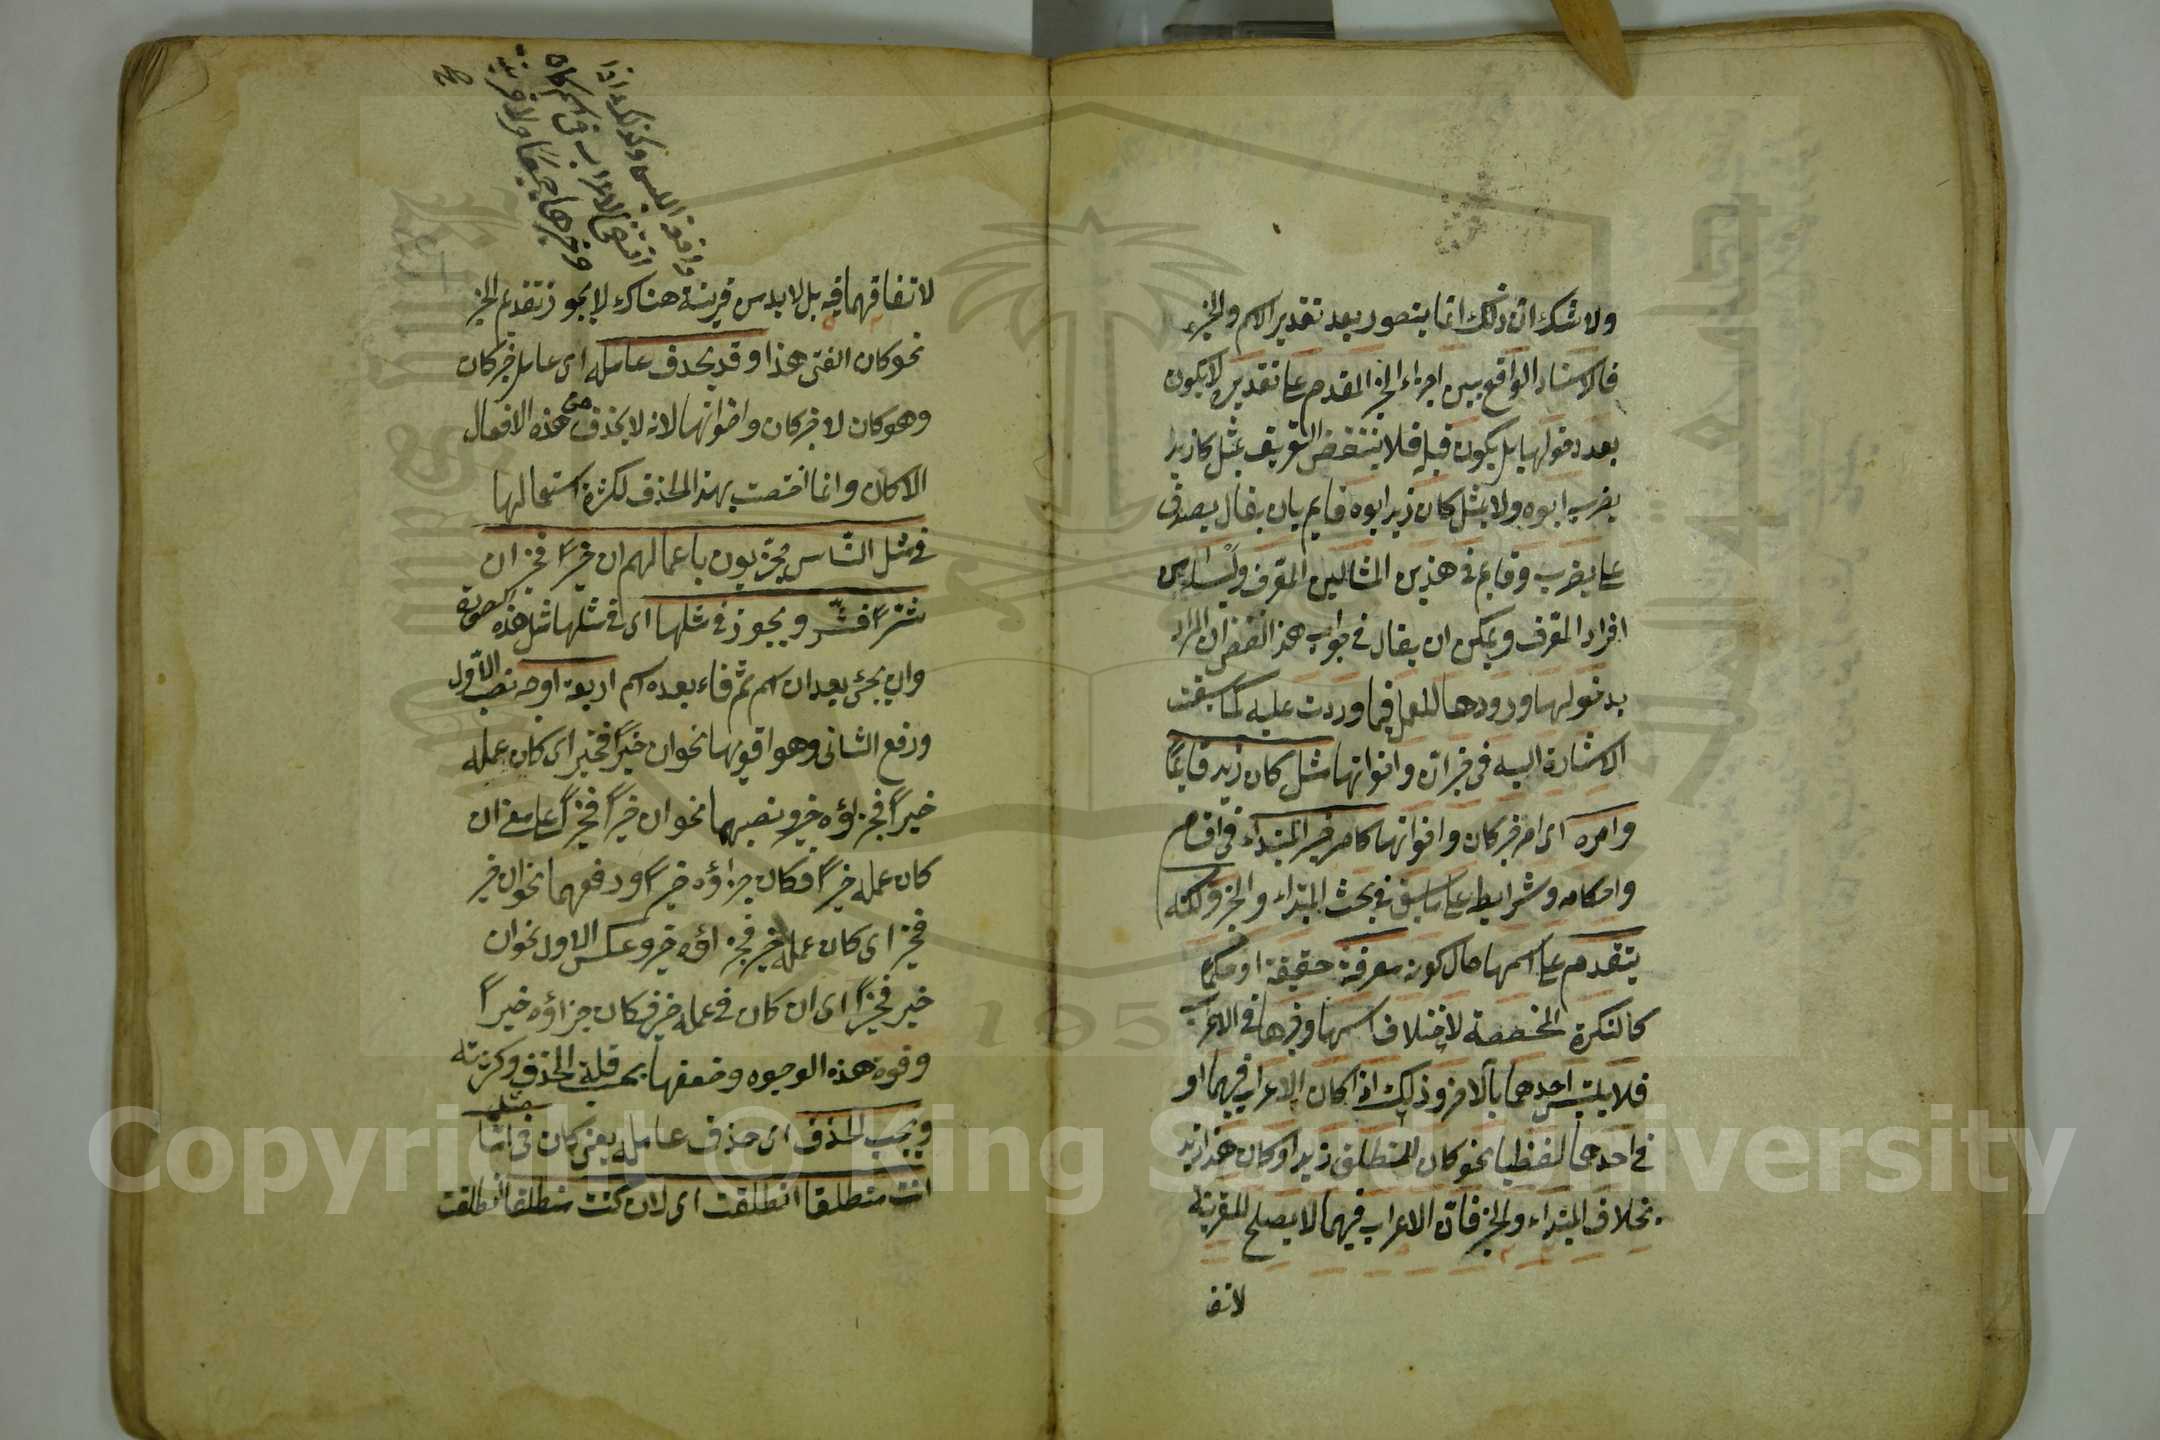 ولا شك ان ذلك انما يتصور بعد تقدير الاسم والخبر
فالاسناد الواقع بين اجزاء الخبر المقدم على تقديره لا يكون
بعد دخولها بل يكون قبله فلا ينتقض التعريف بمثل كان زيد
يضرب ابوه ولا بمثل كان زيد ابوه قايم بان يقال يصدق
على يضرب وقايم في هذين المثالين المعرف وليسا من
افراد المعرف ويمكن ان يقال في جواب هذا النقض ان المراد
بدخولها ورودها للعمل فيما وردت عليه كما سبقت
الاشارة اليه في خبر ان واخواتها مثل كان زيد قايمًا
وامره اى امر خبر كان واخواتها كامر خبر المبتداء في اقسامه
واحكامه وشرايطه على ما سبق في بحث المبتداء والخبر ولكنه
يتقدم على اسمها حال كونه معرفة حقيقة او حكما
كالنكرة المخصصة لاختلاف اسمها وخبرها في الاعراب
فلا يلتبس احدهما بالاخر وذلك اذا كان الاعراب فيهما او
في احدهما لفظيا نحو كان المنطلق زيد او كان هذا زيد
بخلاف المبتداء والخبر فان الاعراب فيهما لا يصلح للقرينة
لاتفا
وانتفى اللبس وكذلك اذا
انتفى الاعراب في اسم كان
وخبرها جميعًا ولا قرينة
لاتفاقهما فيه بل لا بد من قرينة هناك لا يجوز تقديم الخبر
نحو كان الفتى هذا وقد يحذف عامله اى عامل خبر كان
وهو كان لا خبر كان واخواتها لانه لا يحذف من هذه الافعال
الا كان وانما اختصت بهذا الحذف لكثرة استعمالها
في مثل الناس مجزيون باعمالهم ان خيرًا فخير وان
شرًا فشر ويجوز في مثلها اى في مثل هذه الصورة
وان يجئ بعد ان اسم ثم فاء بعده اسم اربعة اوجه نصب الاول
ورفع الثاني وهو اقويها نحو ان خيرًا فخير اى كان عمله
خيرًا فجزاؤه خير ونصبهما نحو ان خيرًا فخيرًا على معنى ان
كان عمله خيرًا فكان جزاؤه خيرًا ورفعهما نحو ان خير
فخير اى كان عمله خير فجزاؤه خير وعكس الاول نحو ان
خير فخيرًا اى ان كان في عمله خير فكان جزاؤه خيرًا
وقوة هذه الوجوه وضعفها بحسب قلة الحذف وكثرته
ويجب الحذف اى حذف عامله يعني كان في مثل اما
انت منطلقا انطلقت اى لان كنت منطلقا انطلقت
Copyright © King Saud University